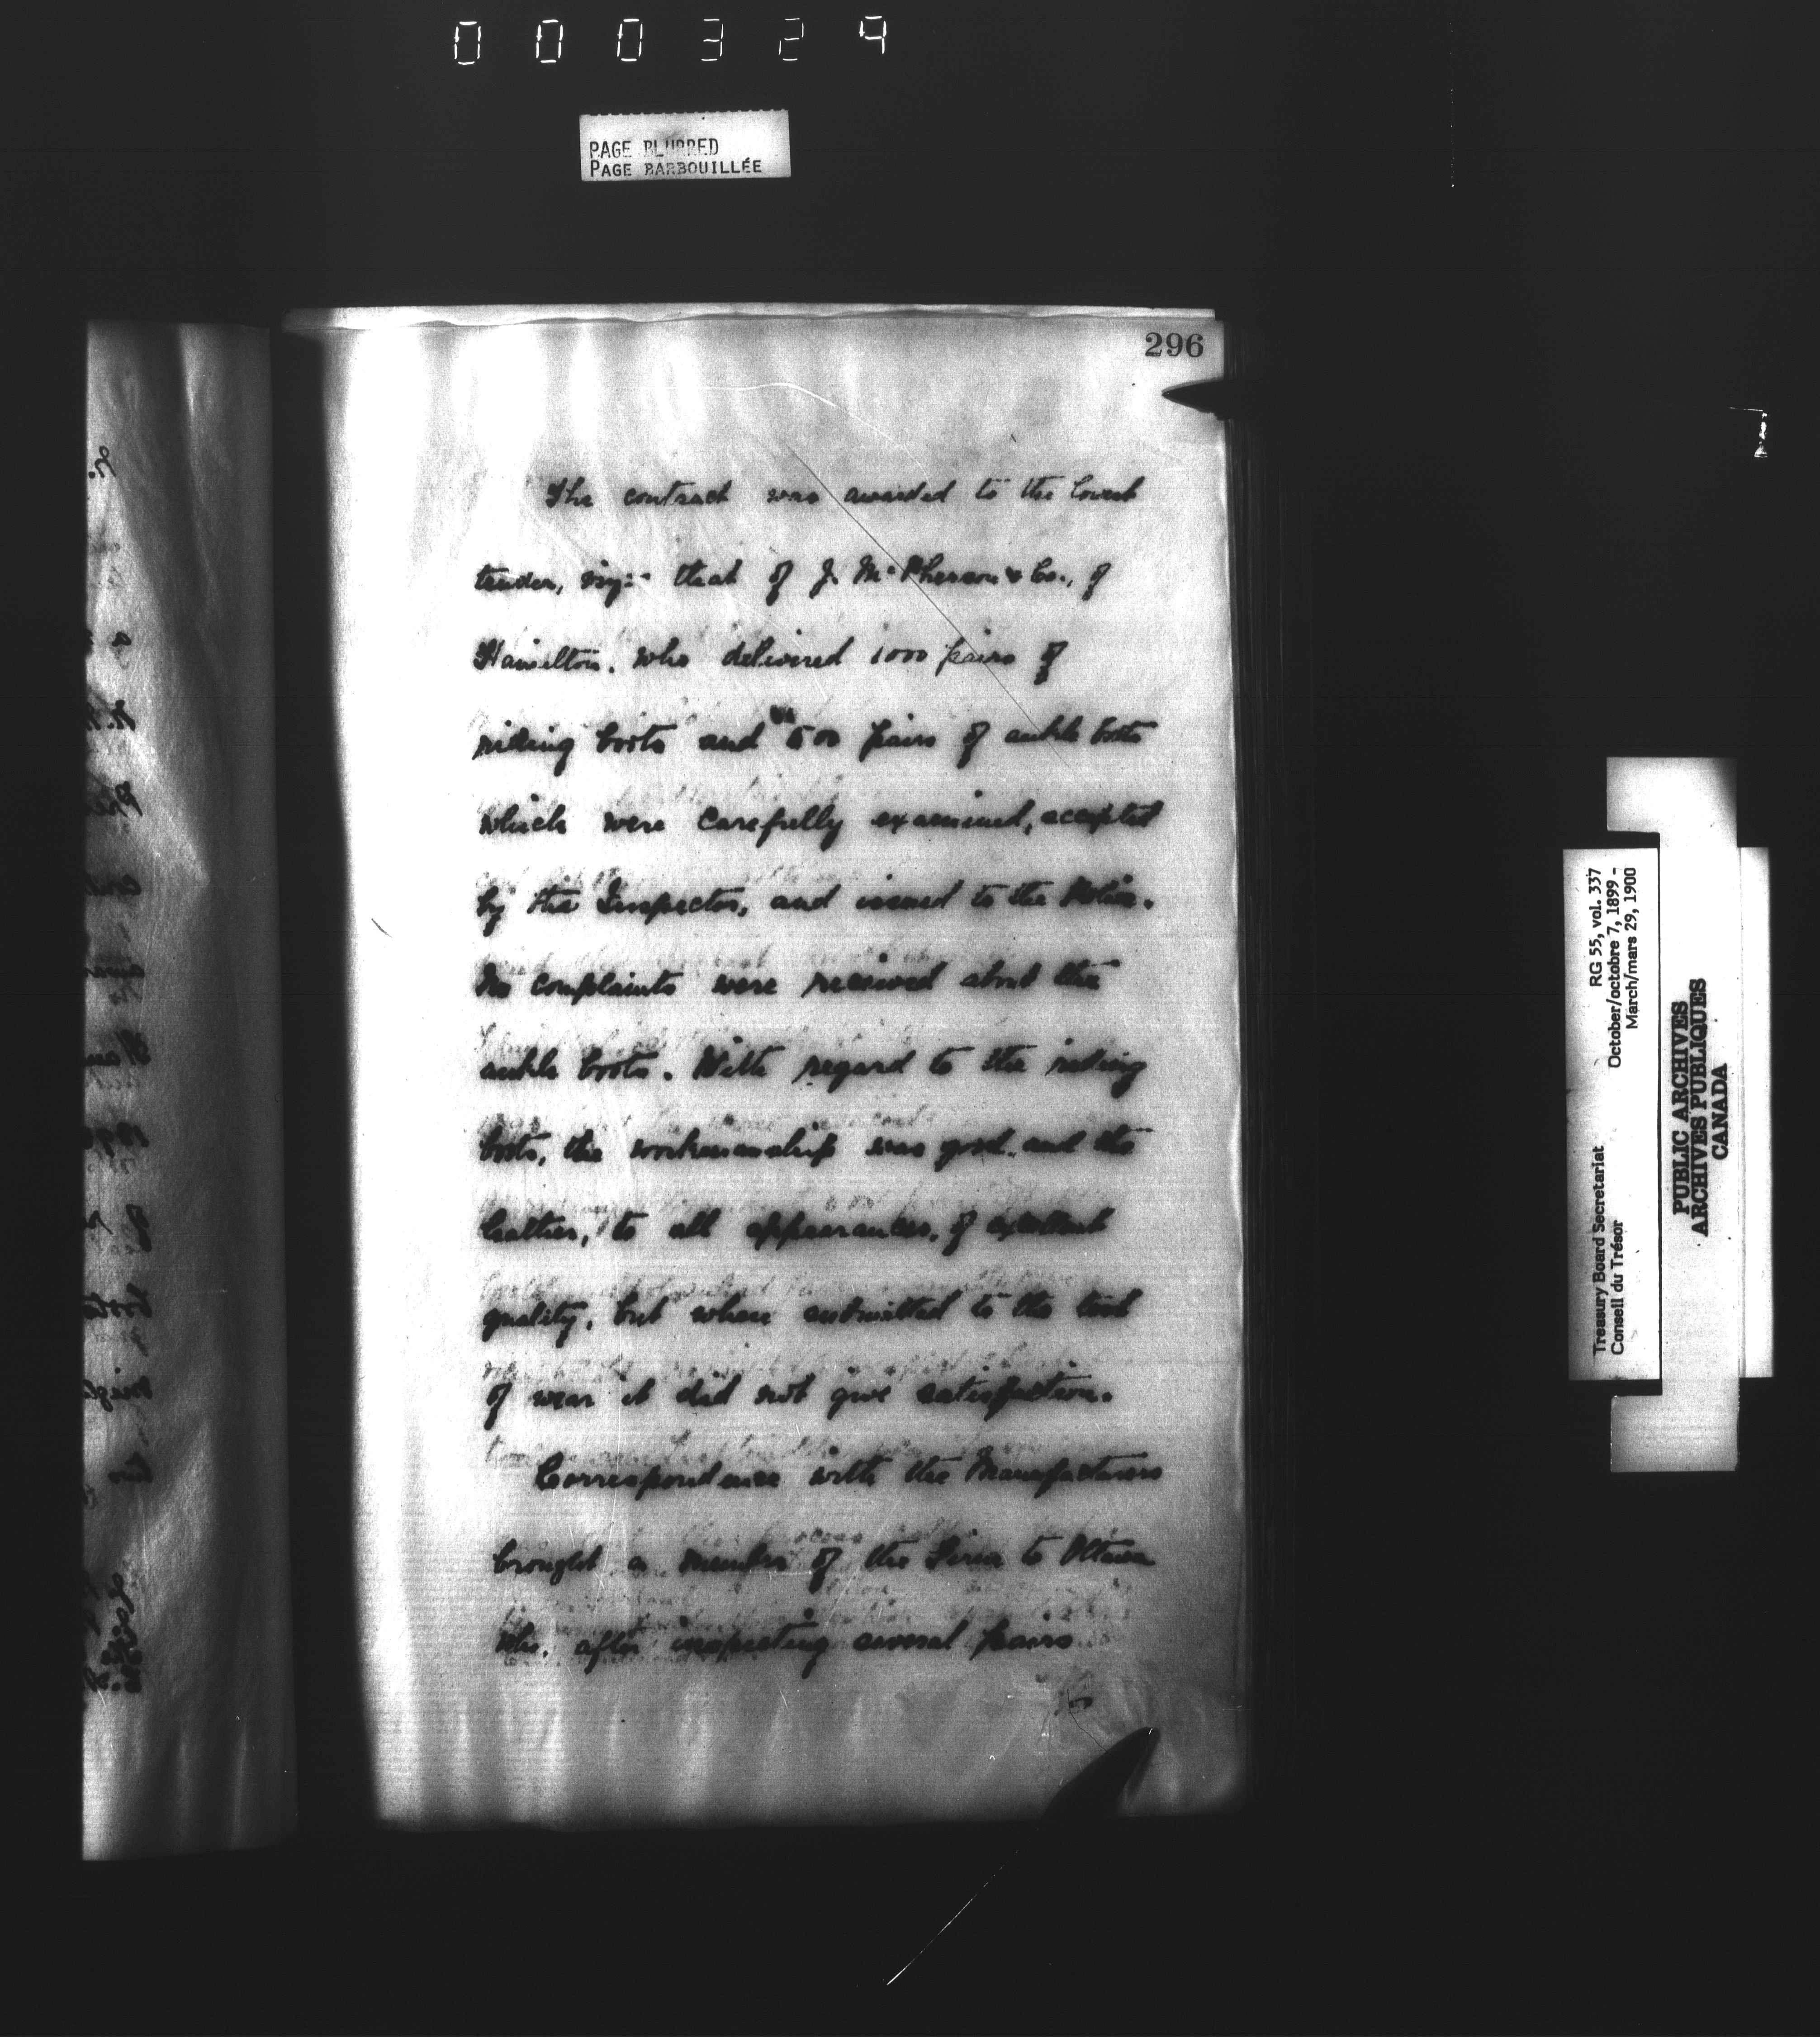 000324
PAGE BLURRED
PAGE BARBOUILLÉE
296
The contract was awarded to the lowest
tender, viz:- that of J. McPherson & Co., of
Hamilton, who delivered 1000 pairs of
riding boots and 500 pairs of ankle boots
which were carefully examined, accepted
by the Inspector, and issued to the Police.
No complaints were received about the
ankle boots. With regard to the riding
boots, the workmanship was good, and the
leather, to all appearances, of excellent
quality, but when submitted to the test
of wear it did not give satisfaction.
Correspondence with the Manufacturers
brought a member of the Firm to Ottawa
who, after inspecting several pairs
Treasury Board Secretariat
Conseil du Trésor
RG 55, vol. 337
October/octobre 7, 1899 -
March/mars 29, 1900
PUBLIC ARCHIVES
ARCHIVES PUBLIQUES
CANADA